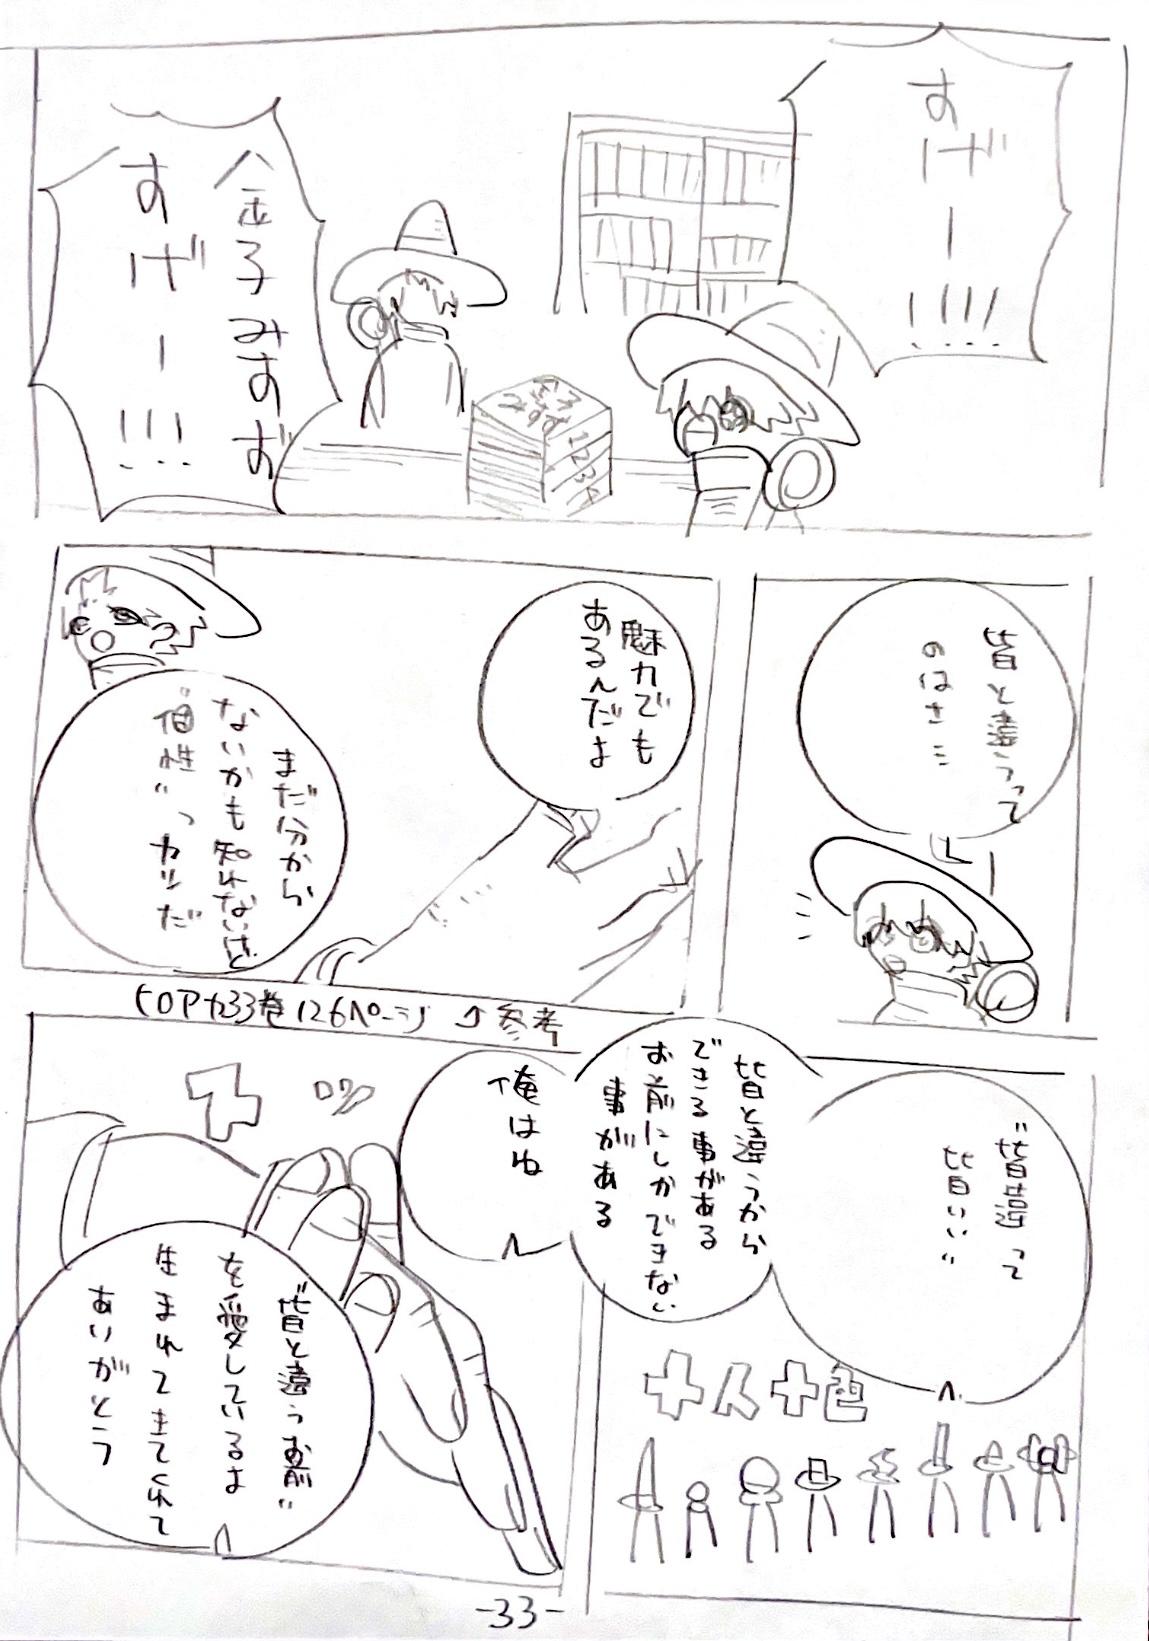 すげー!!!!
金子みすず
すげー!!!
1234
皆と違うって
のはさ…
魅力でも
あるんだよ
まだ分から
ないかも知れないけど
"個性"ってヤツだ
ヒロアカ33巻126ページ 参考
"皆違って
皆いい"
皆と違うから
できる事がある
お前にしかできない
事がある
十人十色
俺はね
"皆と違うお前"
を愛しているよ
生まれてきてくれて
ありがとう
-33-